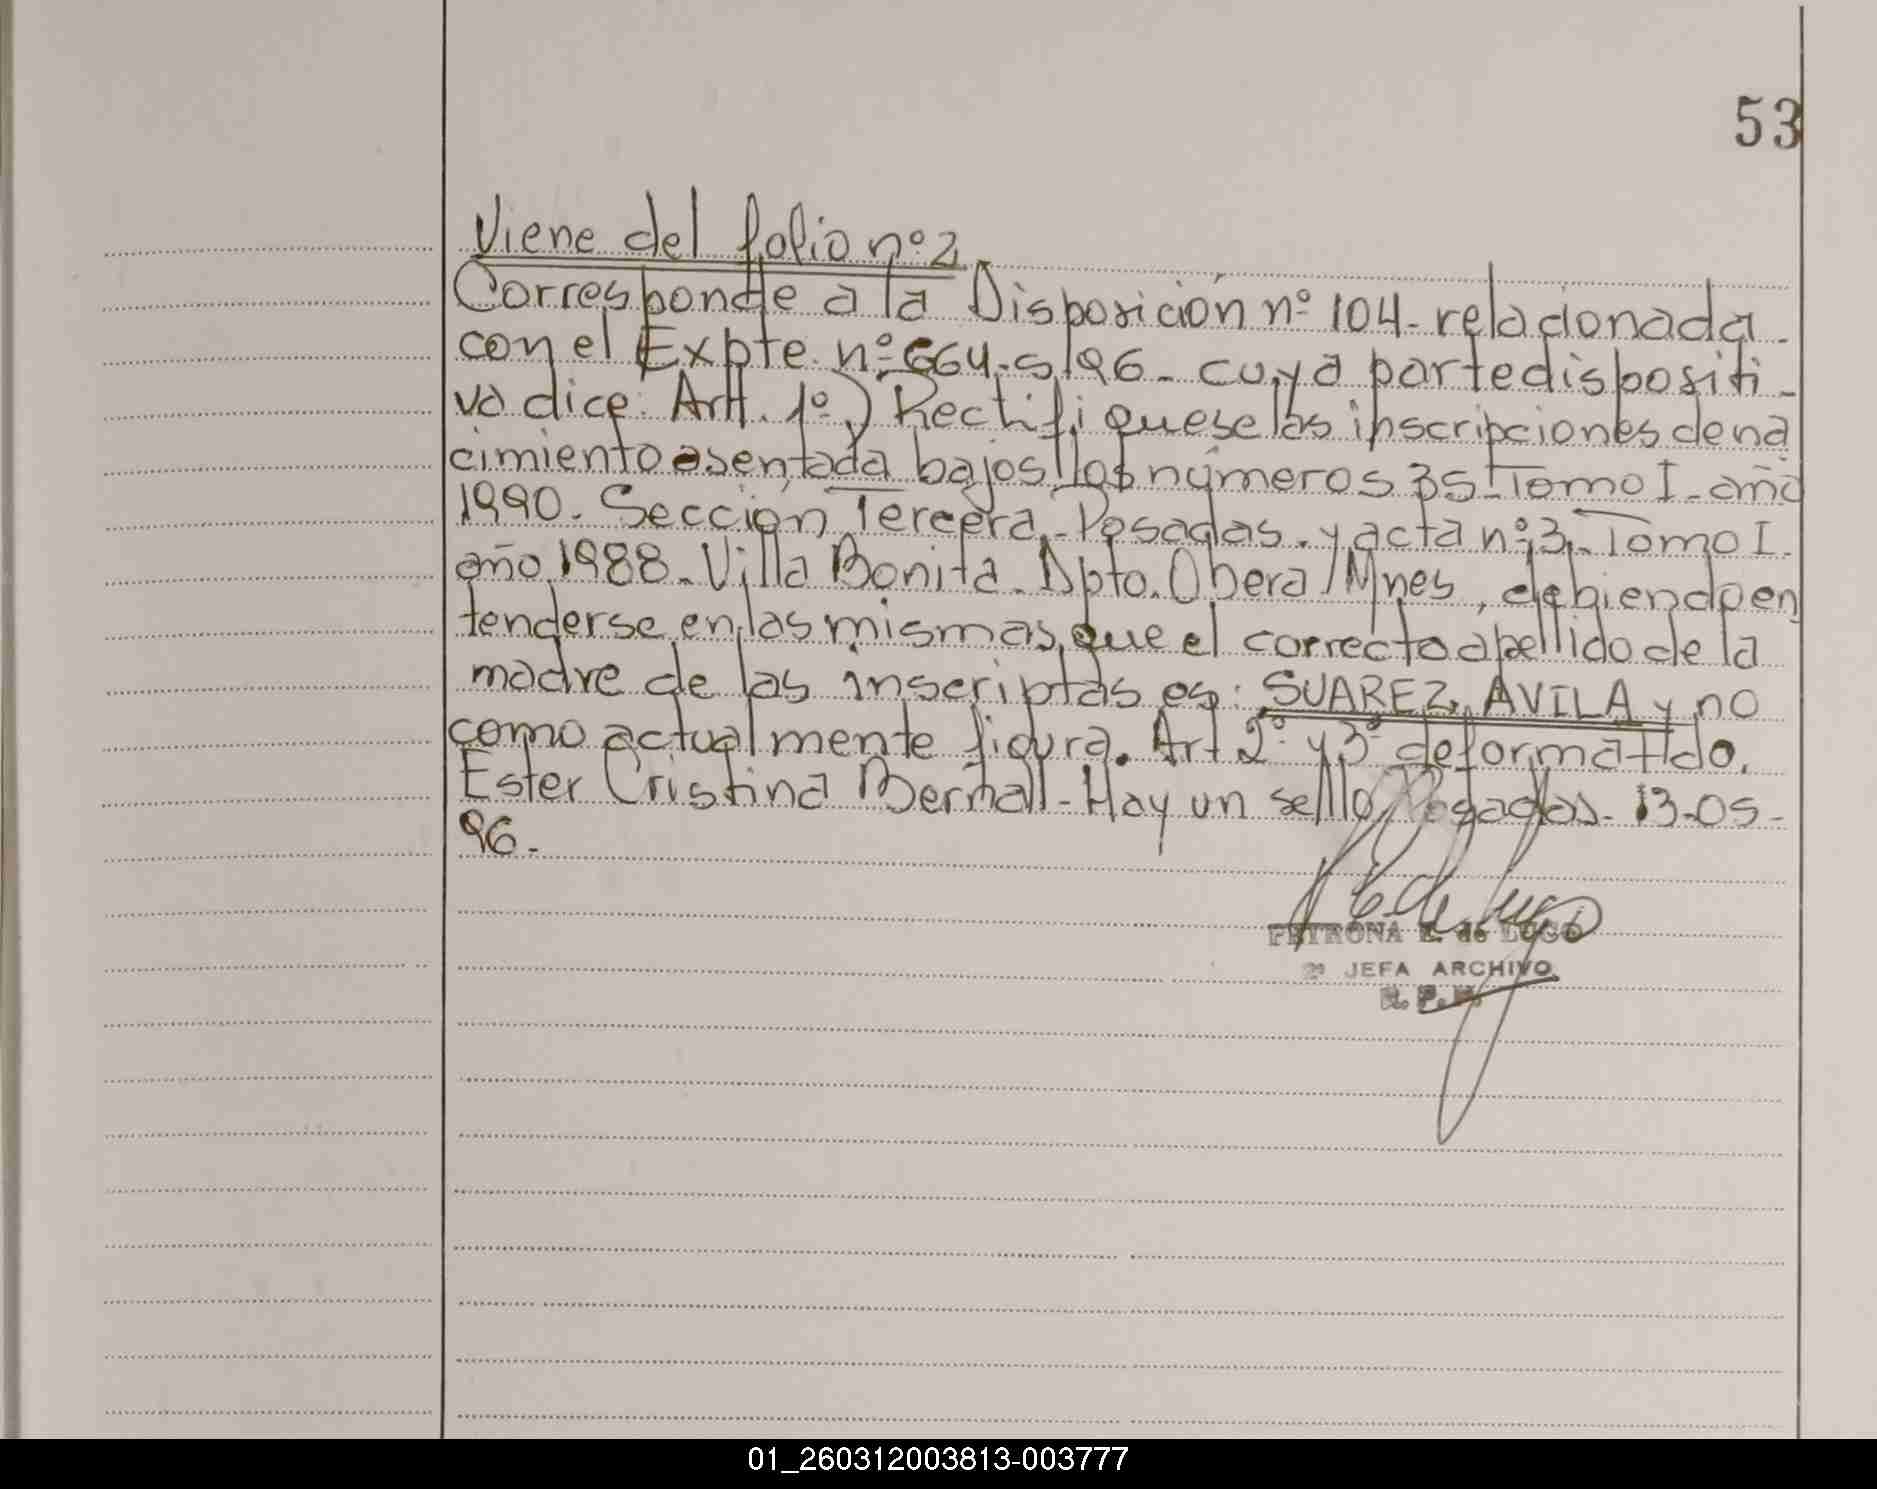 53
Viene del folio nº 2
Corresponde a la Disposición nº 104 - relacionada
con el Expte. nº 664-S/96 - cuya parte dispositi-
va dice: Art. 1º) Rectifiquese las inscripciones de na
cimiento asentada bajos los números 35 - Tomo I - año
1990. Sección Tercera - Posadas. y acta nº 3 - Tomo I.
año 1988 - Villa Bonita - Dpto. Obera / Mnes, debiendo en
tenderse en las mismas que el correcto apellido de la
madre de las inscriptas es: SUAREZ, AVILA y no
como actualmente figura. Art 2º y 3º de forma. Fdo.
Ester Cristina Bernall - Hay un sello Posadas - 13-05-
96.-
PETRONA E. de LUGO
2º JEFA ARCHIVO
R. P. P.
01_260312003813-003777